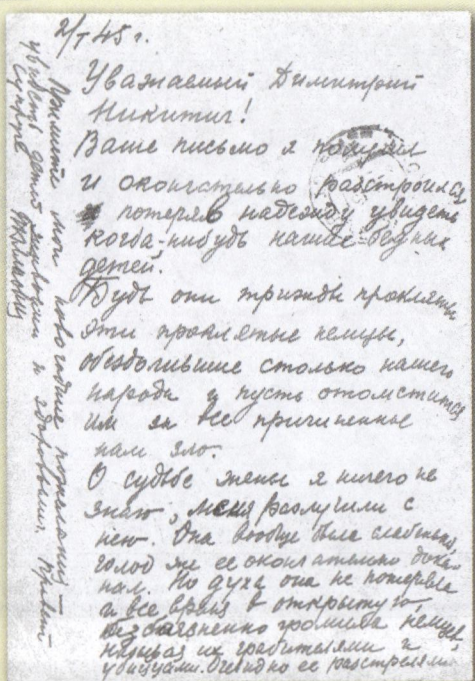 2/I 45 г.
Уважаемый Димитрий
Никитич!
Ваше письмо я получил
и окончательно расстроился
потеряв надежду увидеть
когда-нибудь наших бедных
детей.
Будь они трижды прокляты
эти проклятые немцы,
обездолившие столько нашего
народа и пусть отомстится
им за все причиненное
нам зло.
О судьбе жены я ничего не
знаю, меня разлучили с
нею. Она вообще была слабенькая,
голод же ее окончательно дока-
нал. Но духа она не потеряла
и все время в открытую,
безбоязненно громила немцев,
называя их грабителями и
убийцами. Очевидно ее расстреляли
Примите мои новогодние пожелания –
увидеть детей живыми и здоровыми. Привет
супруге